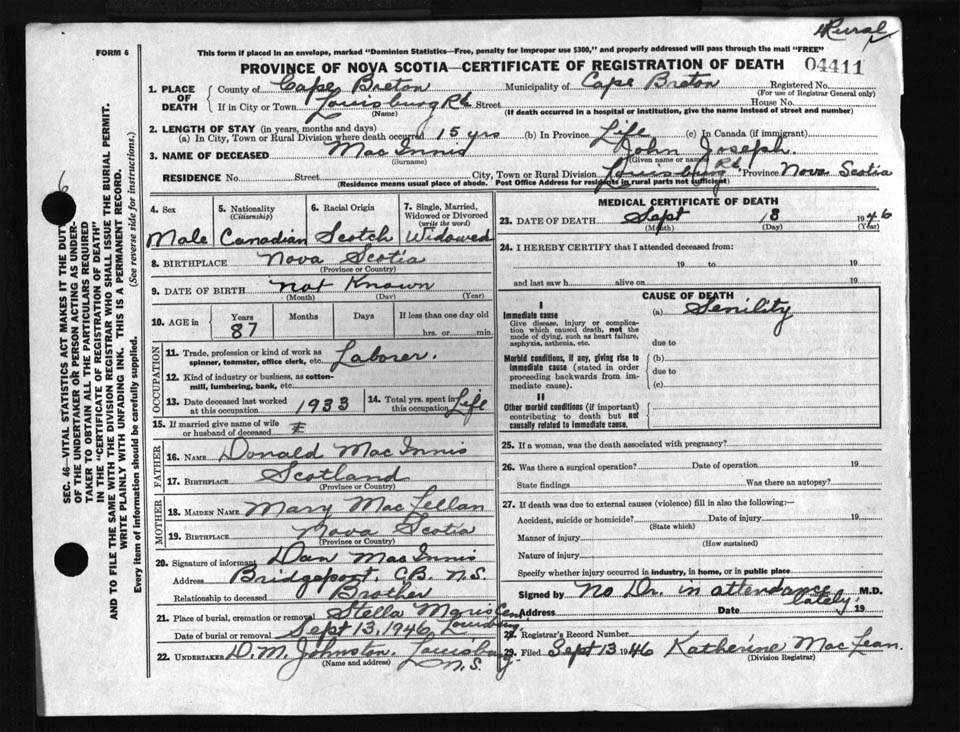 Rural
FORM 6
This form if placed in an envelope, marked "Dominion Statistics—Free, penalty for improper use $300," and properly addressed will pass through the mail "FREE"
PROVINCE OF NOVA SCOTIA—CERTIFICATE OF REGISTRATION OF DEATH 04411
1. PLACE OF DEATH
County of Cape Breton Municipality of Cape Breton Registered No.
(For use of Registrar General only)
If in City or Town Louisburg Rd. Street House No.
(Name) (If death occurred in a hospital or institution, give the name instead of street and number)
2. LENGTH OF STAY (in years, months and days)
(a) In City, Town or Rural Division where death occurred 15 yrs (b) In Province Life (c) In Canada (if immigrant)
3. NAME OF DECEASED Mac Innis John Joseph
(Surname) (Given name or names)
RESIDENCE No. Street City, Town or Rural Division Louisburg Rd. Province Nova Scotia
(Residence means usual place of abode. Post Office Address for residents in rural parts not sufficient)
4. Sex
Male
5. Nationality
(Citizenship)
Canadian
6. Racial Origin
Scotch
7. Single, Married, Widowed or Divorced
(write the word)
Widowed
8. BIRTHPLACE Nova Scotia
(Province or Country)
9. DATE OF BIRTH not Known
(Month) (Day) (Year)
10. AGE in Years Months Days If less than one day old
87 hrs. or min.
OCCUPATION
11. Trade, profession or kind of work as
spinner, teamster, office clerk, etc. Laborer.
12. Kind of industry or business, as cotton-
mill, lumbering, bank, etc.
13. Date deceased last worked
at this occupation 1933
14. Total yrs. spent in
this occupation Life
15. If married give name of wife
or husband of deceased
FATHER
16. NAME Donald Mac Innis
17. BIRTHPLACE Scotland
(Province or Country)
MOTHER
18. MAIDEN NAME Mary Mac Lellan
19. BIRTHPLACE Nova Scotia
(Province or Country)
20. Signature of informant Dan Mac Innis
Address Bridgeport, C.B. N.S.
Relationship to deceased Brother
21. Place of burial, cremation or removal Stella Maris Cem.
Date of burial or removal Sept 13, 1946, Louisburg.
22. UNDERTAKER D. M. Johnston. Louisburg
(Name and address) N.S.
MEDICAL CERTIFICATE OF DEATH
23. DATE OF DEATH Sept 1946
(Month) (Day) (Year)
24. I HEREBY CERTIFY that I attended deceased from:
19 to 19
and last saw h alive on 19
CAUSE OF DEATH
I
Immediate cause
Give disease, injury or complica-
tion which caused death, not the
mode of dying, such as heart failure,
asphyxia, asthenia, etc.
(a) Senility
due to
Morbid conditions, if any, giving rise to
immediate cause (stated in order
proceeding backwards from im-
mediate cause).
(b)
due to
(c)
II
Other morbid conditions (if important)
contributing to death but not
causally related to immediate cause.
25. If a woman, was the death associated with pregnancy?
26. Was there a surgical operation? Date of operation 19
State findings Was there an autopsy?
27. If death was due to external causes (violence) fill in also the following:—
Accident, suicide or homicide? Date of injury 19
(State which)
Manner of injury
(How sustained)
Nature of injury
Specify whether injury occurred in industry, in home, or in public place
Signed by No Dr. in attendance M.D.
lately.
Address Date 19
28. Registrar's Record Number
29. Filed Sept 13 1946 Katherine Mac Lean.
(Division Registrar)
SEC. 46—VITAL STATISTICS ACT MAKES IT THE DUTY
OF THE UNDERTAKER OR PERSON ACTING AS UNDER-
TAKER TO OBTAIN ALL THE PARTICULARS REQUIRED
IN THE "CERTIFICATE OF REGISTRATION OF DEATH"
AND TO FILE THE SAME WITH THE DIVISION REGISTRAR WHO SHALL ISSUE THE BURIAL PERMIT.
WRITE PLAINLY WITH UNFADING INK. THIS IS A PERMANENT RECORD.
Every item of information should be carefully supplied. (See reverse side for instructions.)